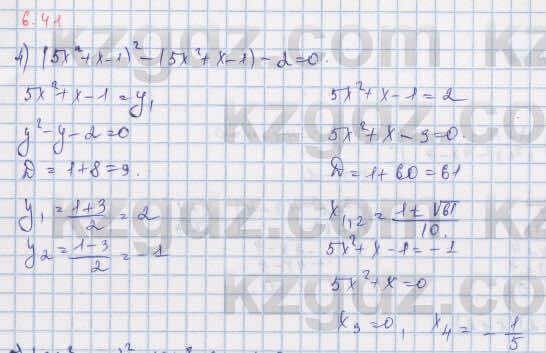 6.41
1) (5x²+x-1)²-(5x²+x-1)-2=0.
5x²+x-1=y,
y²-y-2=0
D=1+8=9.
y₁=(1+3)/2=2
y₂=(1-3)/2=-1
5x²+x-1=2
5x²+x-3=0.
D=1+60=61
x₁,₂=(1±√61)/10.
5x²+x-1=-1
5x²+x=0
x₃=0, x₄=-1/5
kzgdz.com